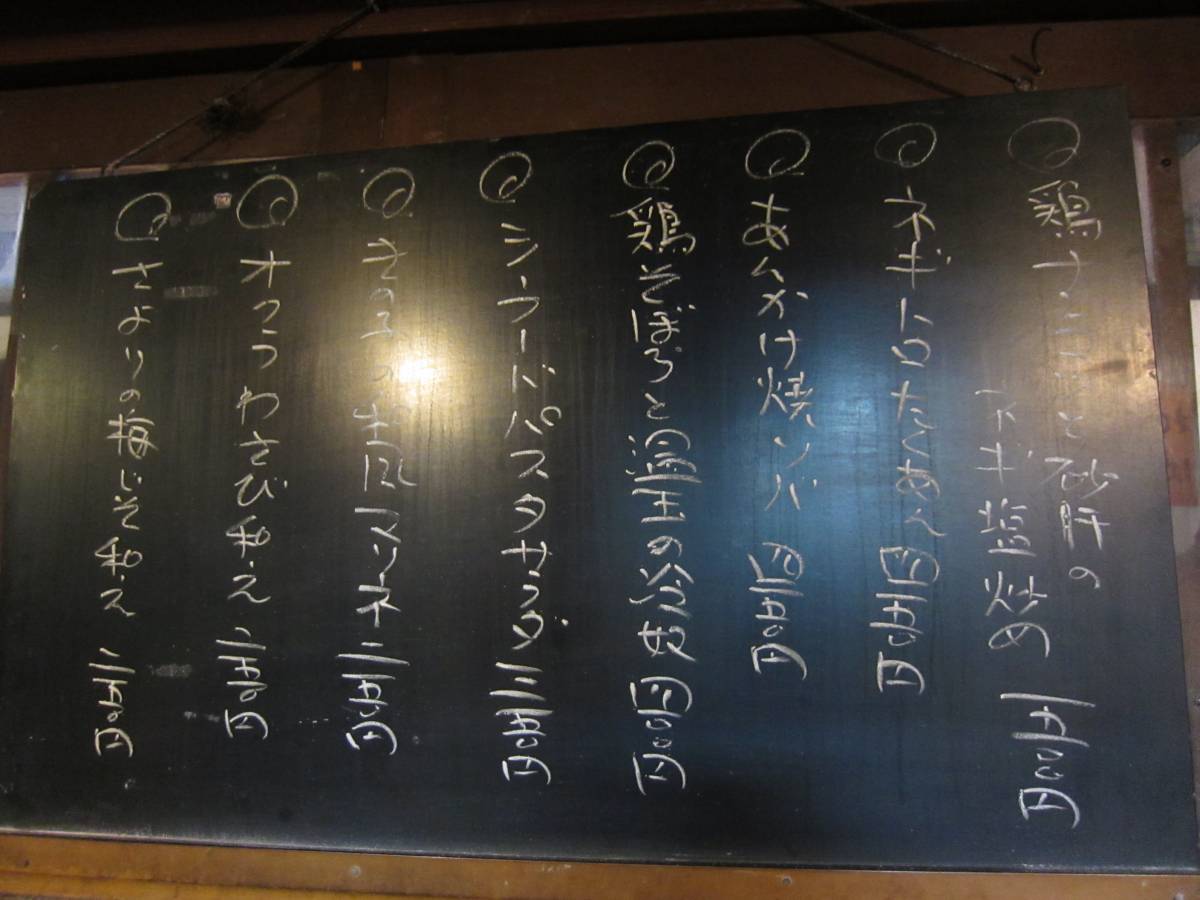 鶏ナンコツと砂肝の
ネギ塩炒め 三五〇円
ネギトロたくあん 四五〇円
あんかけ焼ソバ 四五〇円
鶏そぼろと温玉の冷奴 四〇〇円
シーフードパスタサラダ 三五〇円
きのこの和風マリネ 三五〇円
オクラわさび和え 二五〇円
さよりの梅じそ和え 二五〇円